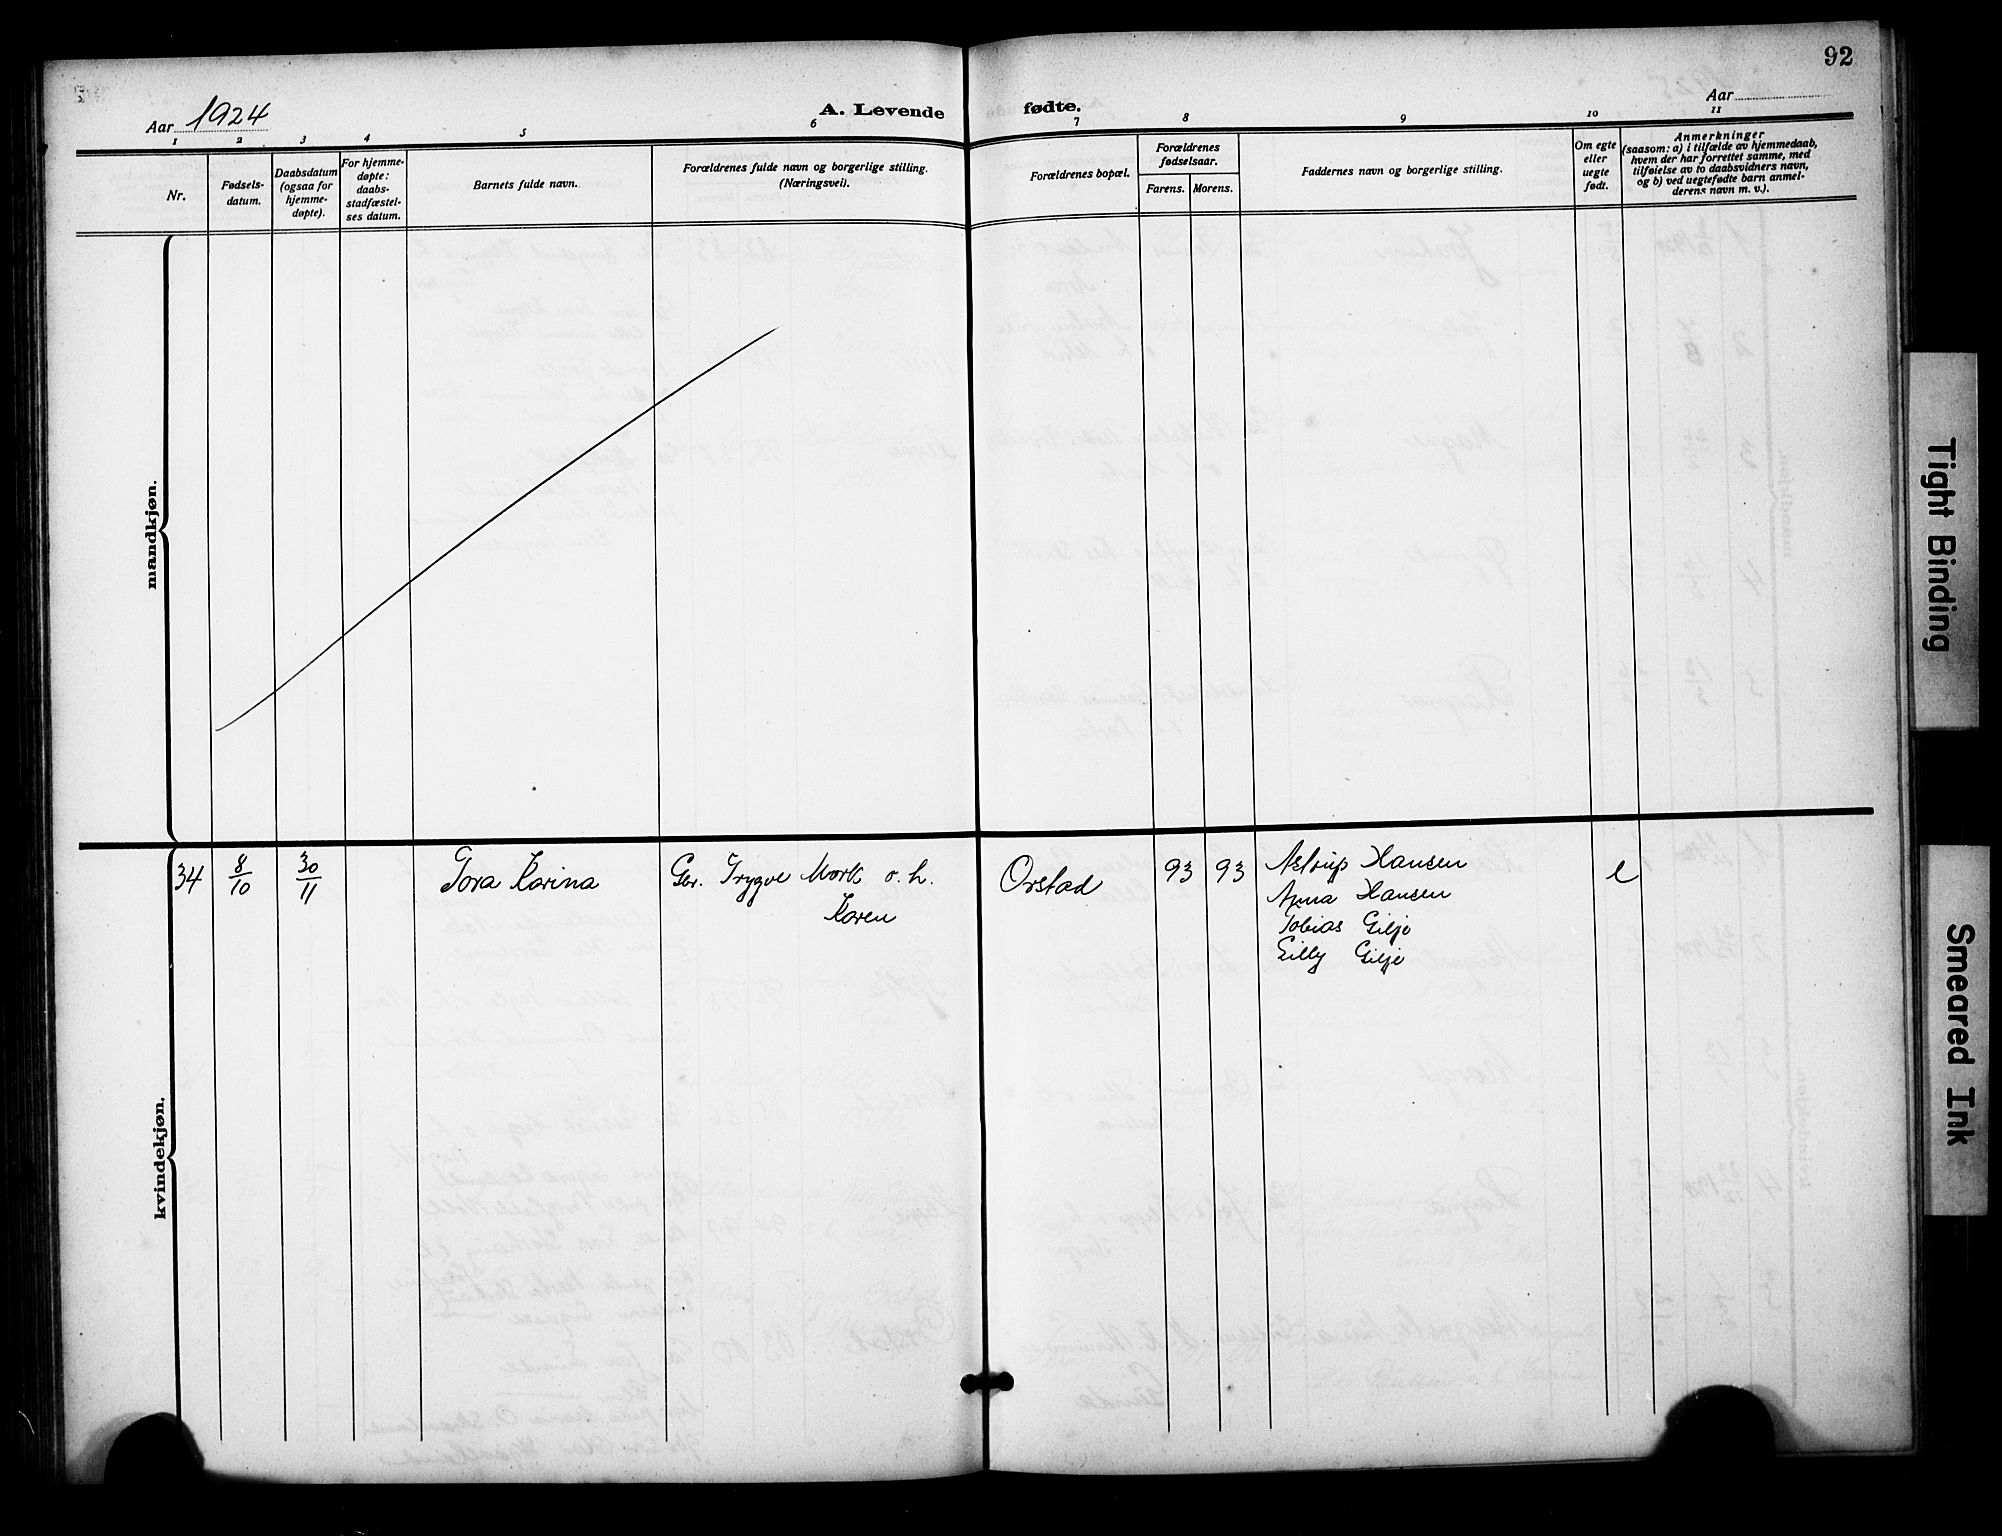 92
Aar 1924
A. Levende fødte.
Aar
1
2
3
4
5
6
7
8
9
10
11
Nr.
Fødsels-
datum.
Daabsdatum
(ogsaa for
hjemme-
døpte).
For hjemme-
døpte:
daabs-
stadfæstel-
ses datum.
Barnets fulde navn.
Forældrenes fulde navn og borgerlige stilling.
(Næringsvei).
Forældrenes bopæl.
Forældrenes
fødselsaar.
Farens.
Morens.
Faddernes navn og borgerlige stilling.
Om egte
eller
uegte
født.
Anmerkninger
(saasom: a) i tilfælde av hjemmedaab,
hvem der har forrettet samme, med
tilføielse av to daabsvidners navn,
og b) ved uegtefødte barn anmel-
derens navn m. v.).
mandkjøn.
kvindekjøn.
34 8/10 30/11 Tora Karina Gbr. Trygve Mork o. h. Orstad 93 93 Astrup Hansen e
Karen
Anna Hansen
Tobias Gilje
Gilje
Tight Binding
Smeared Ink